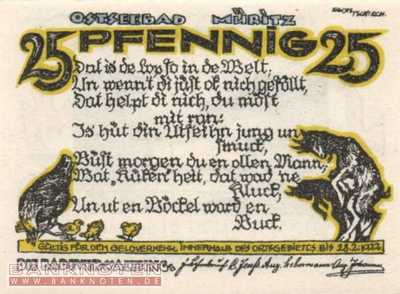 OSTSEEBAD MÜRITZ
25 PFENNIG 25
Dat is de Lop so in de Welt,
Un wenn't di just ok nich geföllt,
Dat helpt di nich, du möst
mit ran:
Is hüt din Utseihn jung un
smuck,
Büst morgen du en ollen Mann;
Wat „Küken" heit, dat ward 'ne
Kluck,
Un ut en Böckel ward en
Buck.
GÜLTIG FÜR DEN GELDVERKEHR INNERHALB DES ORTSGEBIETES BIS 28.2.1922
BANKNOTEN
WWW.BANKNOTEN.DE